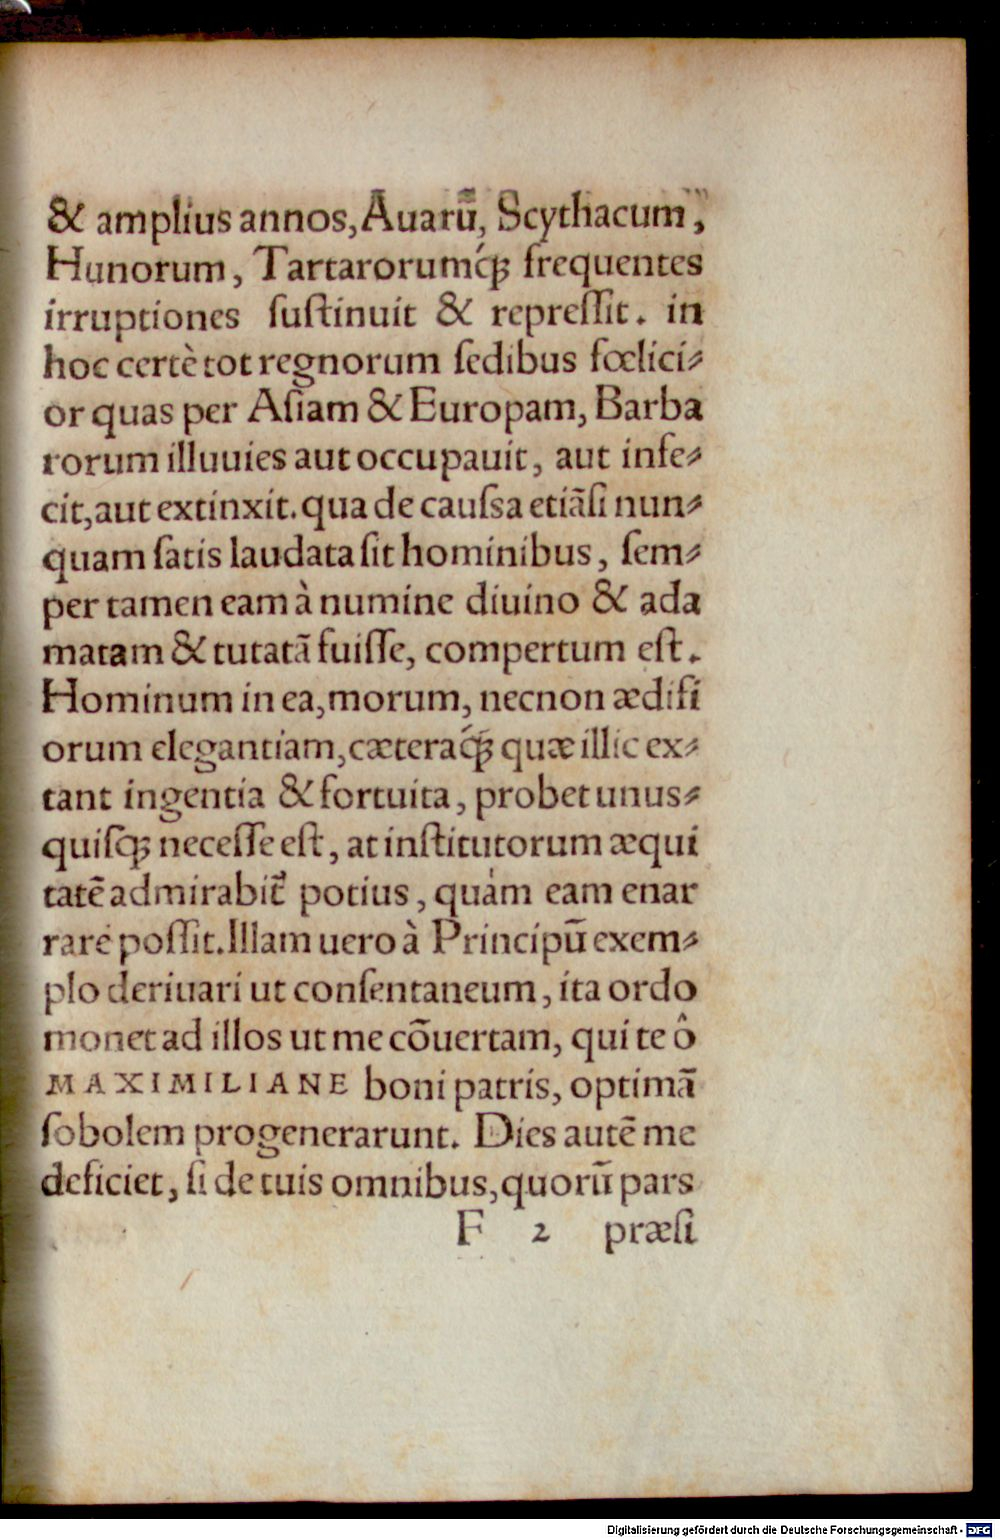 & amplius annos, Auarū, Scythacum,
Hunorum, Tartarorumq́ꝫ frequentes
irruptiones ſuſtinuit & repreſſit. in
hoc certè tot regnorum ſedibus fœlici⸗
or quas per Aſiam & Europam, Barba
rorum illuuies aut occupauit, aut infe⸗
cit, aut extinxit. qua de cauſſa etiāſi nun⸗
quam ſatis laudata ſit hominibus, ſem⸗
per tamen eam à numine diuino & ada
matam & tutatā fuiſſe, compertum eſt.
Hominum in ea, morum, necnon ædifi
orum elegantiam, cæteraq́ꝫ quæ illic ex⸗
tant ingentia & fortuita, probet unus⸗
quiſqꝫ neceſſe eſt, at inſtitutorum æqui
tatē admirabit᷑ potius, quám eam enar
rare poſſit. Illam uero à Principū exem⸗
plo deriuari ut conſentaneum, ita ordo
monet ad illos ut me cōuertam, qui te ô
MAXIMILIANE boni patris, optimā
ſobolem progenerarunt. Dies autē me
deficiet, ſi de tuis omnibus, quorū pars
F 2 præſi
Digitalisierung gefördert durch die Deutsche Forschungsgemeinschaft - DFG